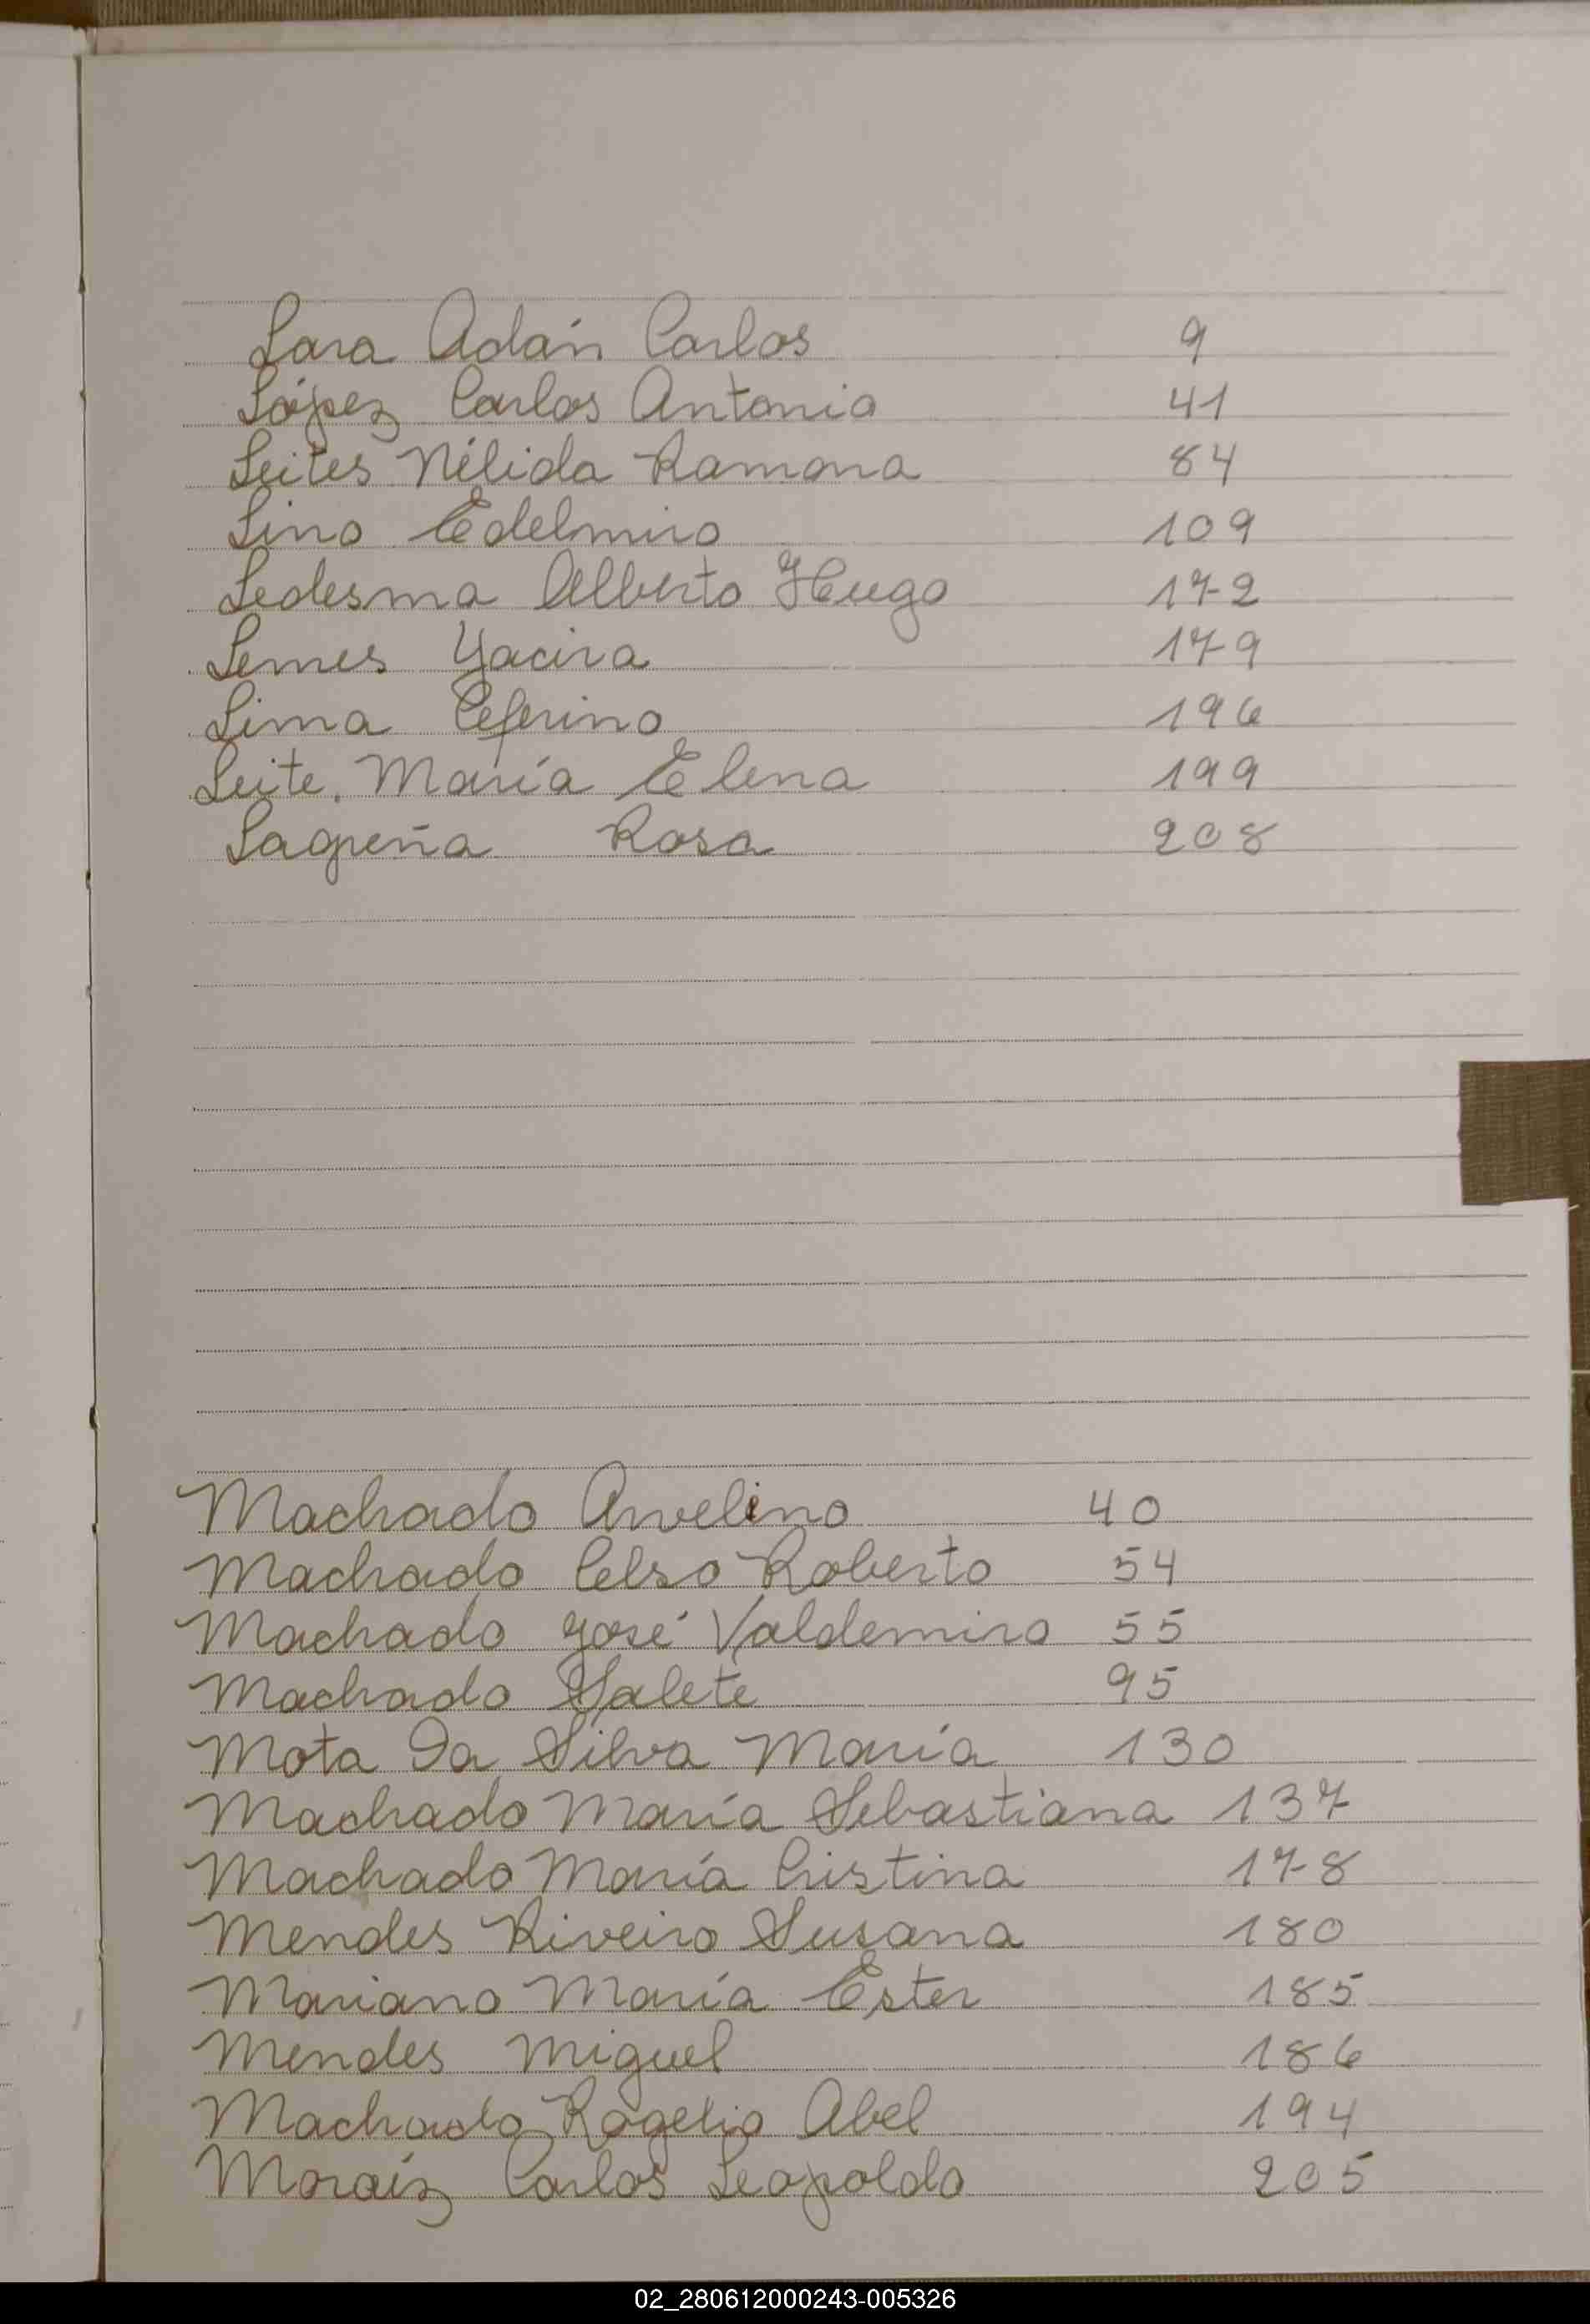 Lara Adán Carlos 9
López Carlos Antonio 41
Leites Nélida Ramona 84
Lino Edelmiro 109
Ledesma Alberto Hugo 172
Lemes Yacira 179
Lima Ceferino 196
Leite, María Elena 199
Lagpeña Rosa 208
Machado Avelino 40
Machado Celso Roberto 54
Machado José Valdemiro 55
Machado Salete 95
Mota Da Silva María 130
Machado María Sebastiana 137
Machado María Cristina 178
Mendes Riveiro Susana 180
Mariano María Ester 185
Mendes Miguel 186
Machado Rogelio Abel 194
Moraiz Carlos Leopoldo 205
02_280612000243-005326